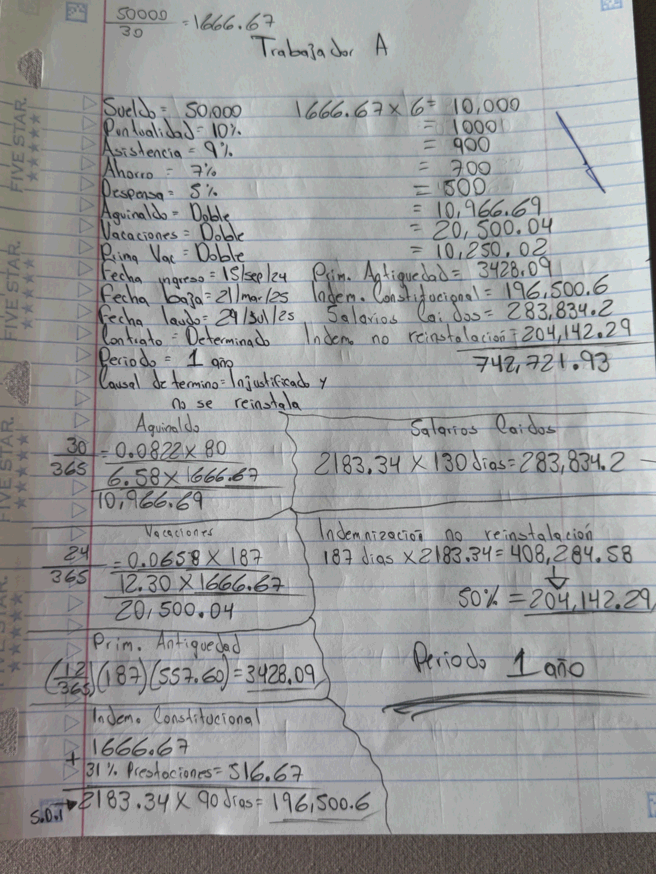 50000
30
=1666.67
Trabajador A
Sueldo = 50,000 1666.67 x 6 = 10,000
Puntualidad = 10% = 1000
Asistencia = 9% = 900
Ahorro = 7% = 700
Despensa = 5% = 500
Aguinaldo = Doble = 10,966.69
Vacaciones = Doble = 20,500.04
Prima Vac = Doble = 10,250.02
Fecha ingreso = 15/sep/24 Prim. Antiguedad = 3428.09
Fecha baja = 21/mar/25 Indem. Constitucional = 196,500.6
Fecha laudo = 29/Jul/25 Salarios Caidos = 283,834.2
Contrato = Determinado Indem no reinstalación = 204,142.29
Periodo = 1 año 742,721.93
Causal de termino = Injustificado y
no se reinstala
Aguinaldo
30
365
= 0.0822 x 80
6.58 x 1666.67
10,966.69
Salarios Caidos
2183.34 x 130 dias = 283,834.2
Vacaciones
24
365
= 0.0658 x 187
12.30 x 1666.67
20,500.04
Indemnización no reinstalación
187 dias x 2183.34 = 408,284.58
50% = 204,142.29
Prim. Antiguedad
(12/365)(187)(557.60) = 3428.09
Periodo 1 año
Indem. Constitucional
1666.67
+
31% Prestaciones = 516.67
S.D.I 2183.34 x 90 dias = 196,500.6
FIVE STAR.
FIVE STAR.
FIVE STAR.
FIVE STAR.